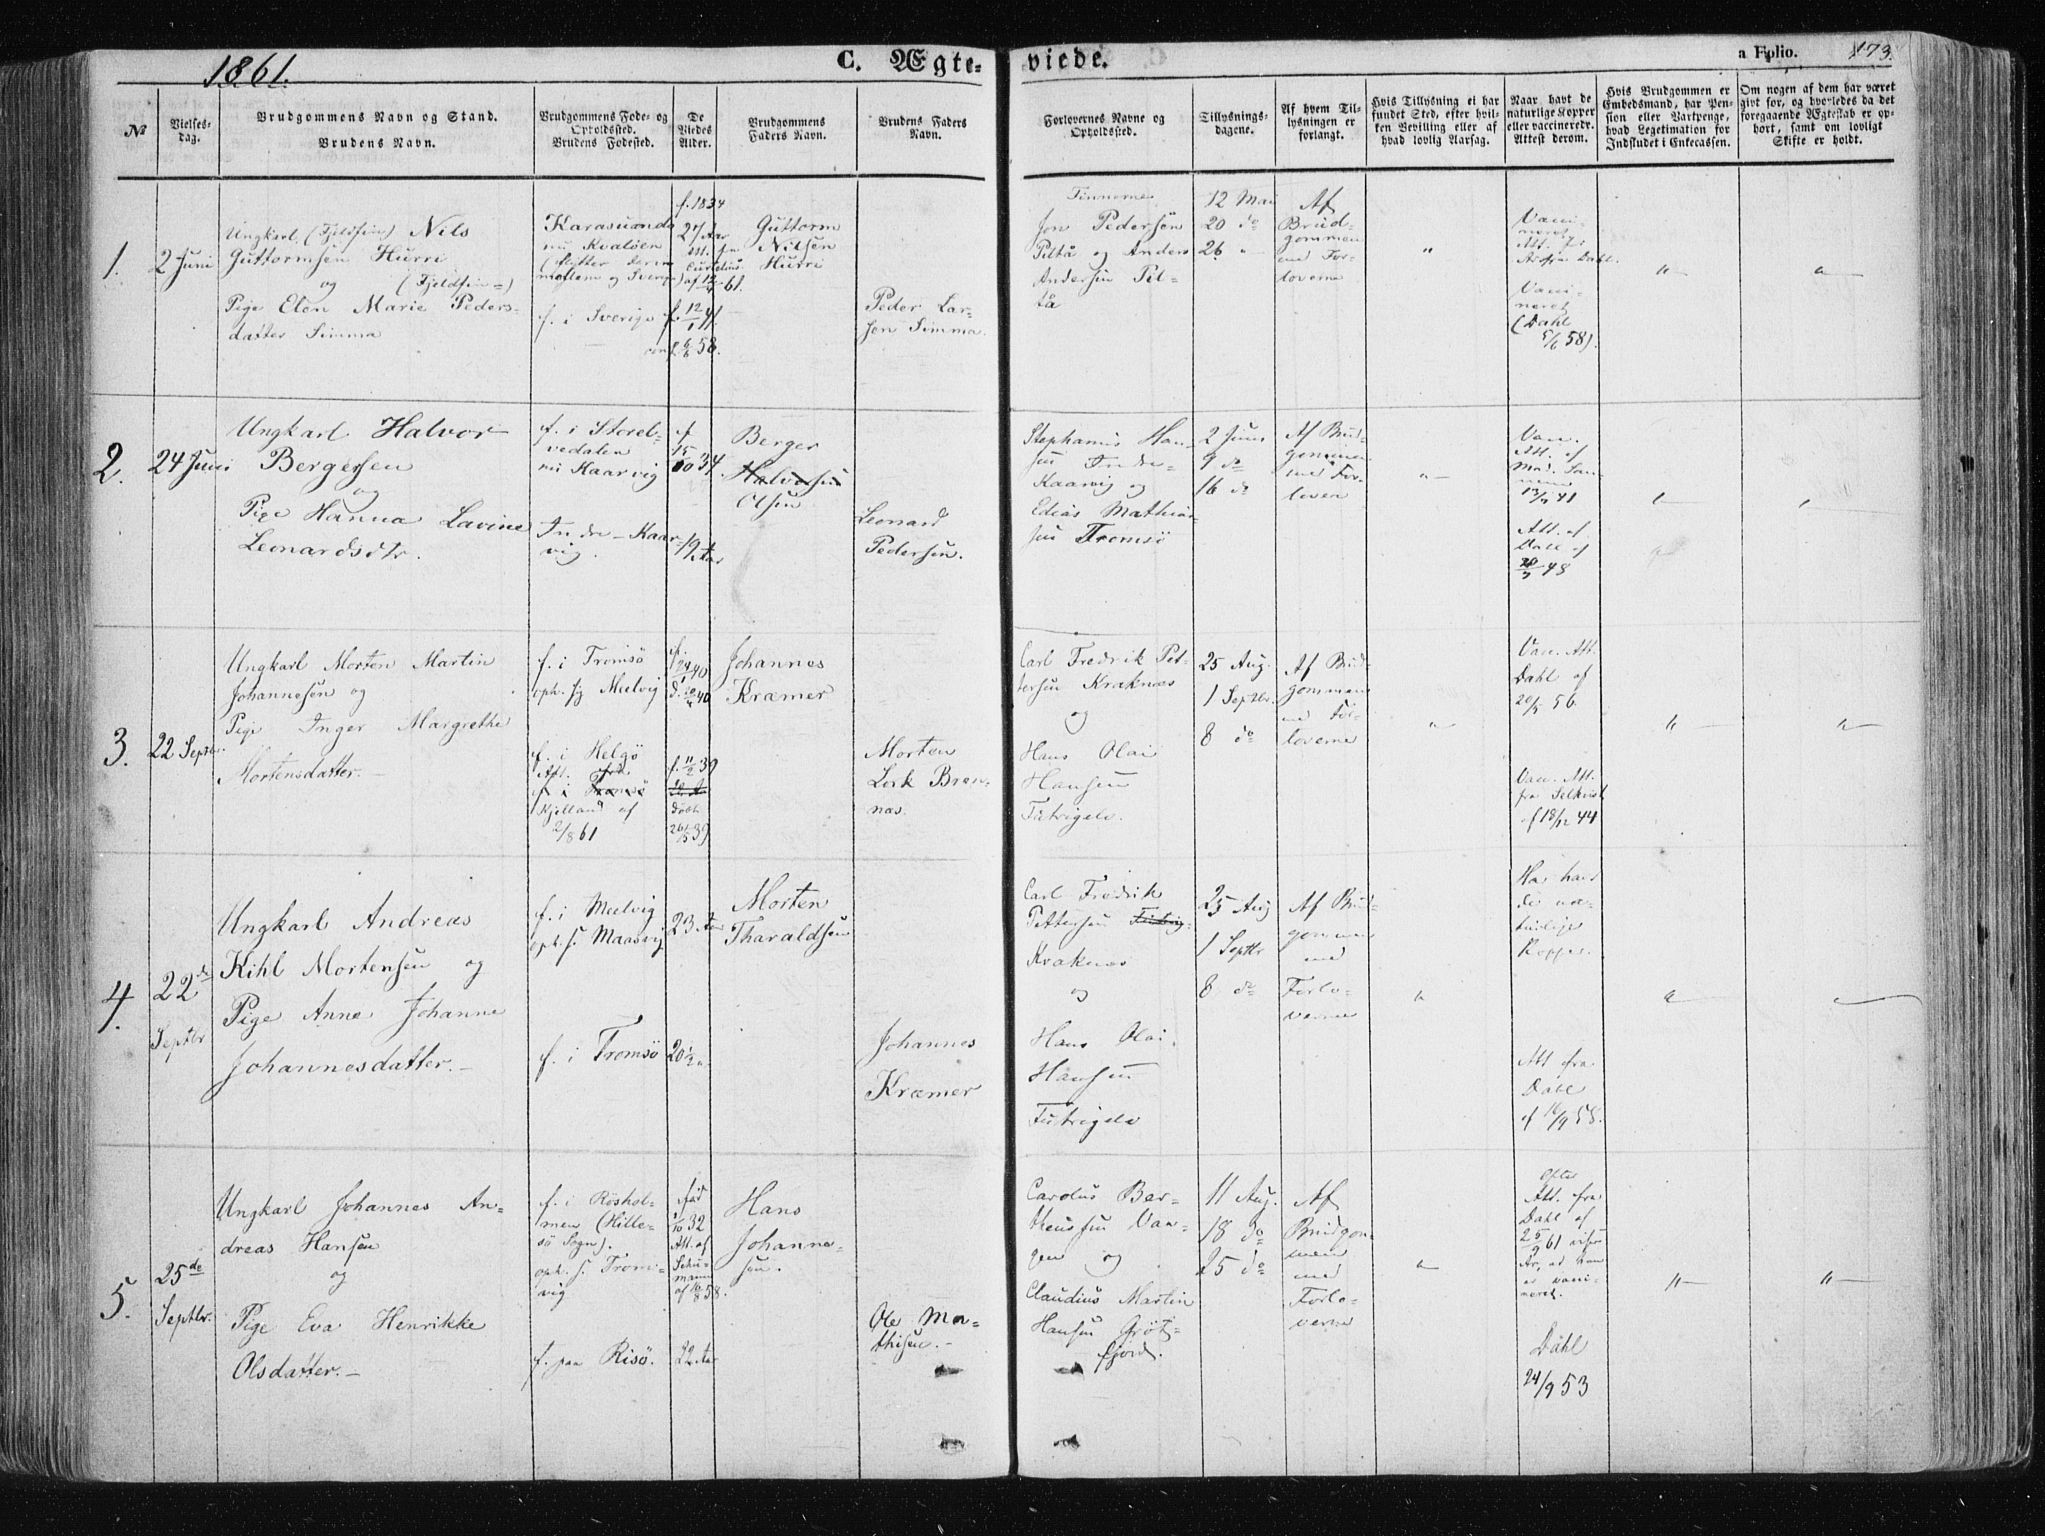 1861.
C. Ægte-
viede.
a Folio. 173.
№
Vielses-
dag.
Brudgommens Navn og Stand.
Brudens Navn.
Brudgommens Føde- og
Opholdssted.
Brudens Fødested.
De
Viedes
Alder.
Brudgommens
Faders Navn.
Brudens Faders
Navn.
Forlovernes Navne og
Opholdssted.
Tillysnings-
dagene.
Af hvem Til-
lysningen er
forlangt.
Hvis Tillysning ei har
fundet Sted, efter hvil-
ken Bevilling eller af
hvad lovlig Aarsag.
Naar havt de
naturlige Kopper
eller vaccinerede.
Attest derom.
Hvis Brudgommen er
Embedsmand, har Pen-
sion eller Vartpenge,
hvad Legetimation for
Indskudet i Enkecassen.
Om nogen af dem har været
givt før, og hvorledes da det
foregaaende Ægteskab er op-
hørt, samt om lovligt
Skifte er holdt.
1.
2 Juni
Ungkarl (Fjeldfin) Nils
Guttormsen Hurri
og (Fjeldfin-)
Pige Elen Marie Peders-
datter Simma
Karasuando
nu Kvaløen
(flytter derim
mellem og Sverige)
f. i Sverige
f. 1834
27 Aar
Att. fra
af 12/4 61.
f. 12/1 41.
conf. 6/6 58.
Guttorm
Nilsen
Hurri
Peder Lar-
sen Simma.
Finnerne
Jon Pedersen
Piltå og Anders
Andersen Pil-
tå
12 Mai
20 do
26 "
Af
Brud-
gommen
med For-
loverne
"
Vacci-
neret,
Att. fr
Dahl.
Vacci-
neret
(Dahl
5/6 58).
"
"
2.
24 Juni
Ungkarl Halvor
Bergersen
og
Pige Hanna Lavine
Leonardsdtr.
f. i Storel-
vedalen
nu Kaarvig
Indre-Kaar-
vig.
f.
15/10 34.
19 Aar
Berger
Halvorsen
Olsen
Leonard
Pedersen.
Stephanus Han-
sen Indre-
Kaarvig og
Edeas Mathias-
sen Tromsø
2 Juni
9 do
16 do
Af Brud-
gommen
med For-
lover
"
Vac.
Att. af
Mad.
13/7 41
Att. af
Dahl af
28/7 48
"
"
3.
22 Septbr.
Ungkarl Morten Martin
Johannesen og
Pige Inger Margrethe
Mortensdatter.
f. i Tromsø
oph. sg Mielvig
f. i Helgø
Att. fra
f. i Tromsø
Kjelland af
2/8 61
f.
24/1 40
d. 20/4 40
f. 11/2 39
døbt
26/5 39
Johannes
Kræmer
Morten
Lork Bren-
næs.
Carl Fredrik Pet-
tersen Kraknæs
og
Hans Olai
Hansen
Futrigelv.
25 Aug.
1 Septbr.
8 do
Af Brud-
gommen
med For-
loverne
"
Vac. Att.
Dahl af
20/5 56.
Vac. Att.
fra Selkvist
af 18/12 44
"
"
4.
22de
Septbr
Ungkarl Andreas
Kihl Mortensen og
Pige Anne Johanne
Johannesdatter.
f. i Meelvig
oph. s. Maasvig
f. i Tromsø
23 Aar
20 1/2 "
Morten
Tharaldsen
Johannes
Kræmer
Carl Fredrik
Pettersen
Kraknæs
og
Hans Olai
Hansen
Futrigelv
25 Aug
1 Septbr
8 do
Af Brud-
gommen
med
Forlo-
verne
"
Har havt
de na-
turlige
Kopper.
Att fra
Dahl
af 16/9 58.
"
"
5.
25de
Septbr.
Ungkarl Johannes An-
dreas Hansen
og
Pige Eva Henrikke
Olsdatter.
f. i Røshol-
men (Hille-
sø Sogn).
oph. s. Trom-
vig
f. paa Risø.
fød
1/10 32
Att. af
Schu-
mann
af 16/8 58.
22 Aar
Hans
Johanne-
sen.
Ole Ma-
thisen.
Carolus Ber-
theussen Van-
gen og
Claudius Martin
Hansen Grøt-
fjord.
11 Aug.
18 do
25 do
Af
Brudgom-
men
med
Forlo-
verne
"
Efter
Att. fra
Dahl af
25/9 61 viser
at han
er vacci-
neret.
Dahl
24/9 53
"
"